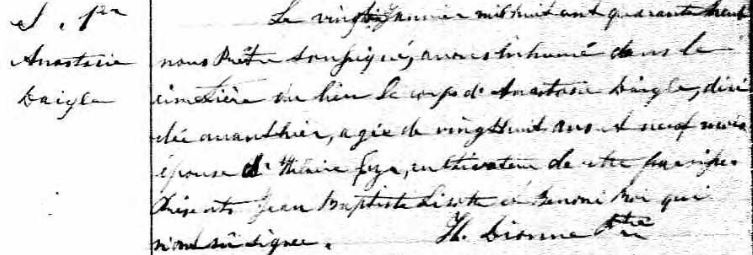 S. 1re
Anastasie
Daigle
Le vingt Janvier mil huit cent quarante neuf
nous Prêtre soussigné, avons inhumé dans le
cimetière du lieu le corps d'Anastasie Daigle, décé
dée avant hier, agée de vingt huit ans et neuf mois
épouse d' Hilaire cultivateur de cette paroisse
Présents Jean Baptiste Lizotte et Benoni Roi qui
n'ont sû signer.
H. Dionne Ptre